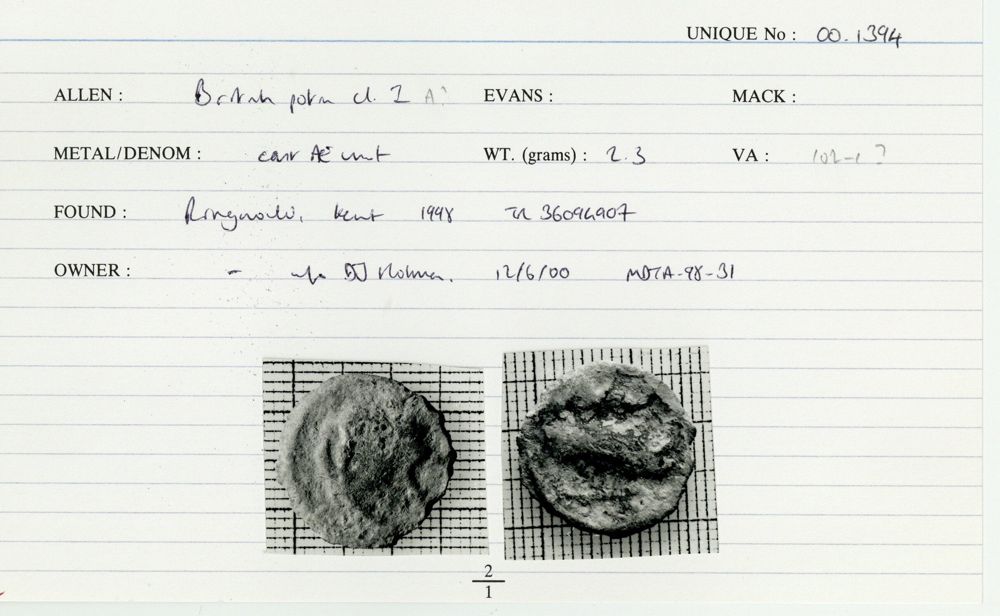 UNIQUE No : 00.1394
ALLEN : British potin cl. I A? EVANS : MACK :
METAL/DENOM : cast AE unit WT. (grams) : 2.3 VA : 102-1 ?
FOUND : Ringwould, Kent 1998 TR 36094907
OWNER : - DJ Holman. 12/6/00 MDTA-98-31
2
1